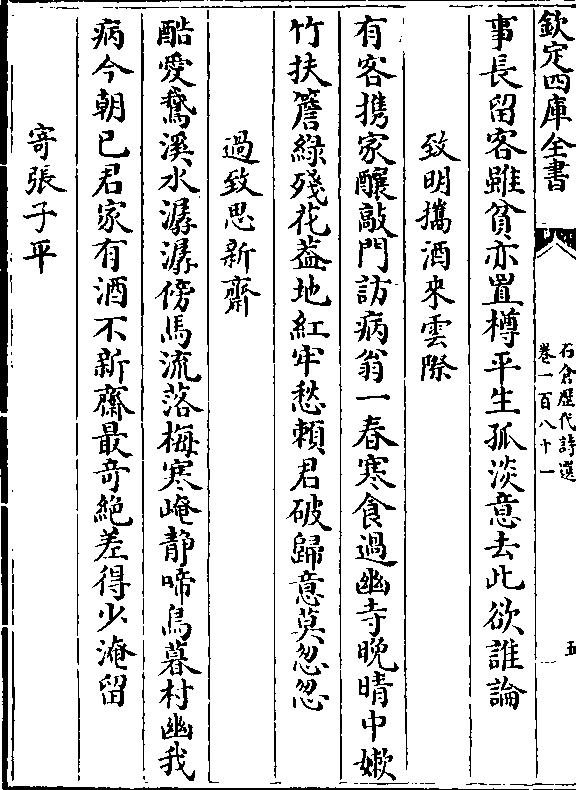 欽定四庫全書
石倉歷代詩選
卷一百八十一
五
事長留客雖貧亦置樽平生孤淡意去此欲誰論
致明攜酒來雲際
有客携家釀敲門訪病翁一春寒食過幽寺晚晴中嫩
竹扶簷綠殘花葢地紅牢愁頼君破歸意莫怱怱
過致思新齋
酷愛鵞溪水潺潺傍馬流落梅寒崦静啼鳥暮村幽我
病今朝已君家有酒不新齋最竒絶差得少淹留
寄張子平